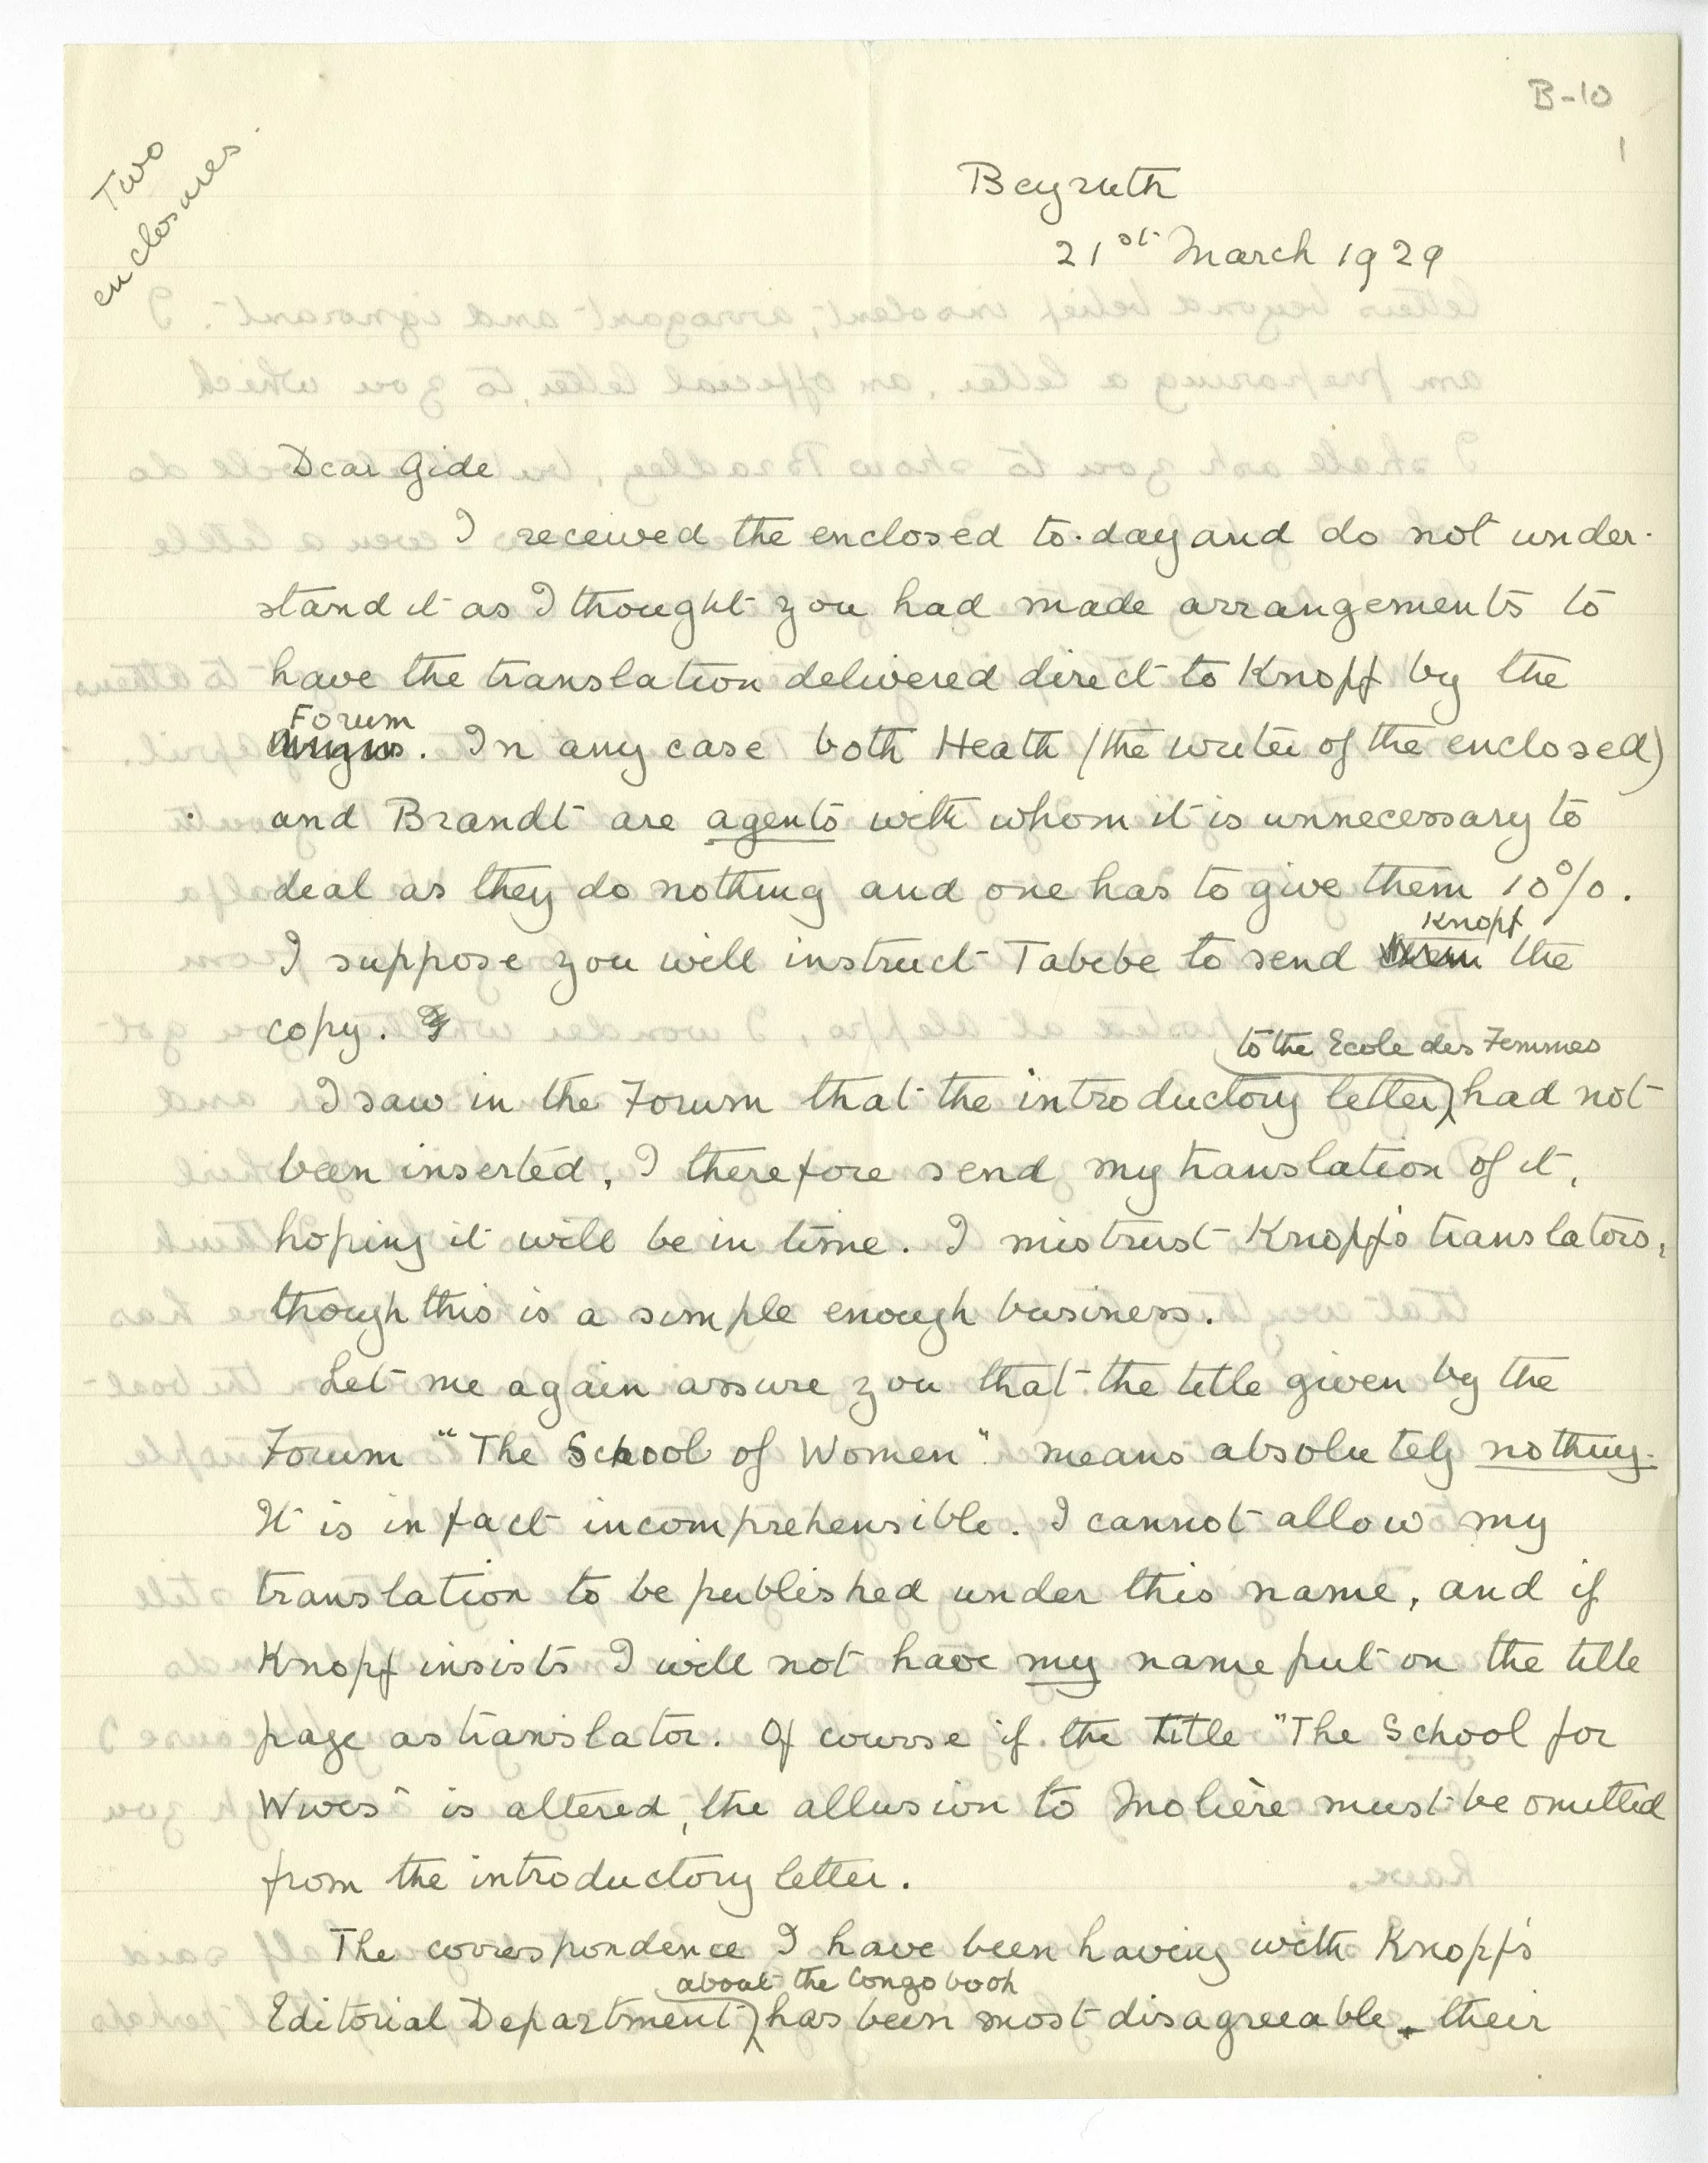 B-10
1
Two
enclosures.
Beyruth
21st March 1929
Dear Gide
I received the enclosed to-day and do not under-
stand it as I thought you had made arrangements to
have the translation delivered direct to Knopf by the
Forum
. In any case both Heath (the writer of the enclosed)
and Brandt are agents with whom it is unnecessary to
deal as they do nothing and one has to give them 10%.
Knopf
I suppose you will instruct Tabebe to send them the
copy. I
to the Ecole des Femmes
I saw in the Forum that the introductory letter had not
been inserted, I therefore send my translation of it,
hoping it will be in time. I mistrust Knopf's translators,
though this is a simple enough business.
Let me again assure you that the title given by the
Forum "The School of Women" means absolutely nothing.
It is in fact incomprehensible. I cannot allow my
translation to be published under this name, and if
Knopf insists I will not have my name put on the title
page as translator. Of course if the title "The School for
Wives" is altered, the allusion to Molière must be omitted
from the introductory letter.
The correspondence I have been having with Knopf's
about the Congo book
Editorial Department has been most disagreeable - their